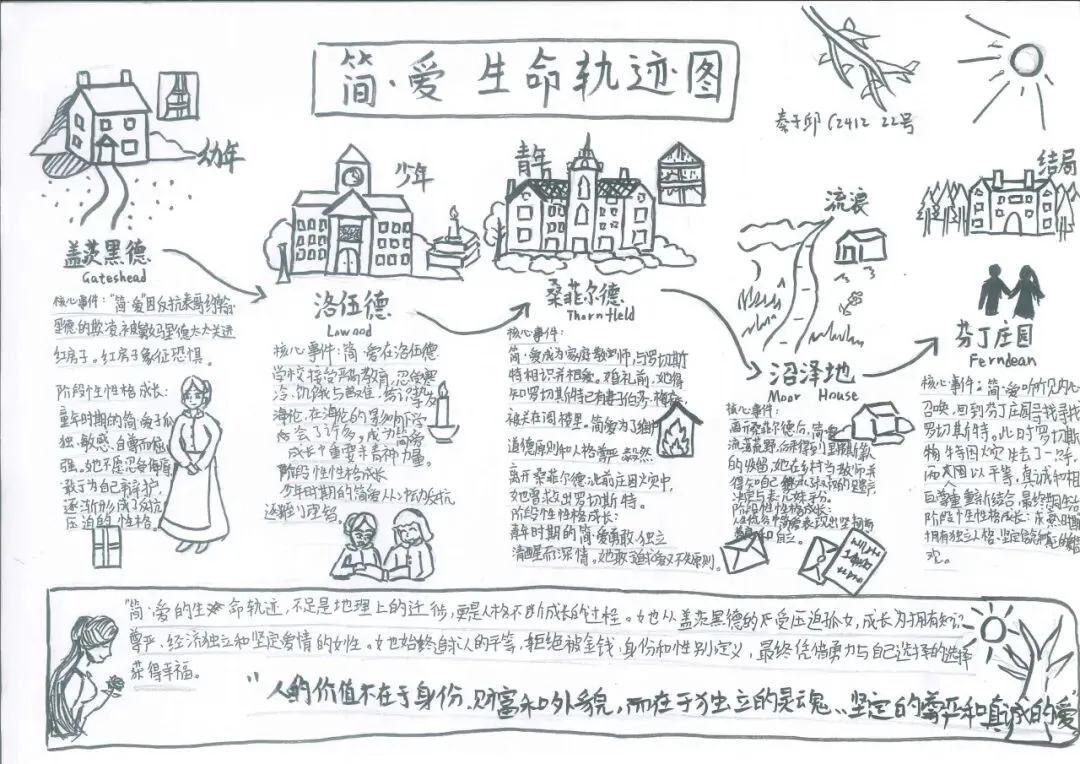 简·爱 生命轨迹图
C2412 22号
幼年
盖茨黑德
Gateshead
核心事件："简·爱因反抗表哥约翰·
里德的欺凌,被里德太太关进
红房子。红房子象征恐惧。
阶段性性格成长:
童年时期的简·爱孤
独、敏感、自尊而倔
强。她不愿忍
敢于为自己辩护,
逐渐形成了反抗
压迫的性格。
少年
洛伍德
Lowood
核心事件:简·爱在洛伍德
学校接受严苛教育,忍受寒
冷、饥饿与
海伦,在海伦的影响下学
会了许多,成为简爱
成长中重要精神力量。
阶段性性格成长
少年时期的简爱从
逐
青年
桑菲尔德
Thornfield
核心事件:
简·爱成为家庭教师,与罗切斯
特相识并相爱。婚礼前,她得
知罗切斯特已有妻子伯莎·梅森,
被关在阁楼里。简爱为了维护
道德原则和人格尊严毅然
离开桑菲尔德。此前庄园火灾中,
她曾救出罗切斯特。
阶段性性格成长:
青年时期的简·爱勇敢、独立
清醒而深情。她敢追求爱又不失原则。
流浪
沼泽地
Moor House
核心事件:
离开桑菲尔德后,简爱
流落荒野,后来得到里弗斯
的收留,她在乡村当教师并
得知自己
决定与表兄妹平分。
阶段性性格成长:
结局
芬丁庄园
Ferndean
核心事件:简·爱听见内心
召唤,回到芬丁庄园寻找寻找
罗切斯特。此时罗切斯
特因火灾失去了一只手,
两人因以平等,真诚和相
互尊重重新结合,最终
阶段性性格成长:成熟时期
拥有独立人格、坚定
观。
"简·爱的生命轨迹,不只是地理上的迁徙,更是人格不断成长的过程。她从盖茨黑德的受压迫孤女,成长为拥有知识
尊严、经济独立和坚定爱情的女性。她始终追求人的平等,拒绝被金钱、身份和性别定义,最终凭借勇气与自己选择的选择
获得幸福。
"人的价值不在于身份、财富和外貌,而在于独立的灵魂、坚定的尊严和真诚的爱"